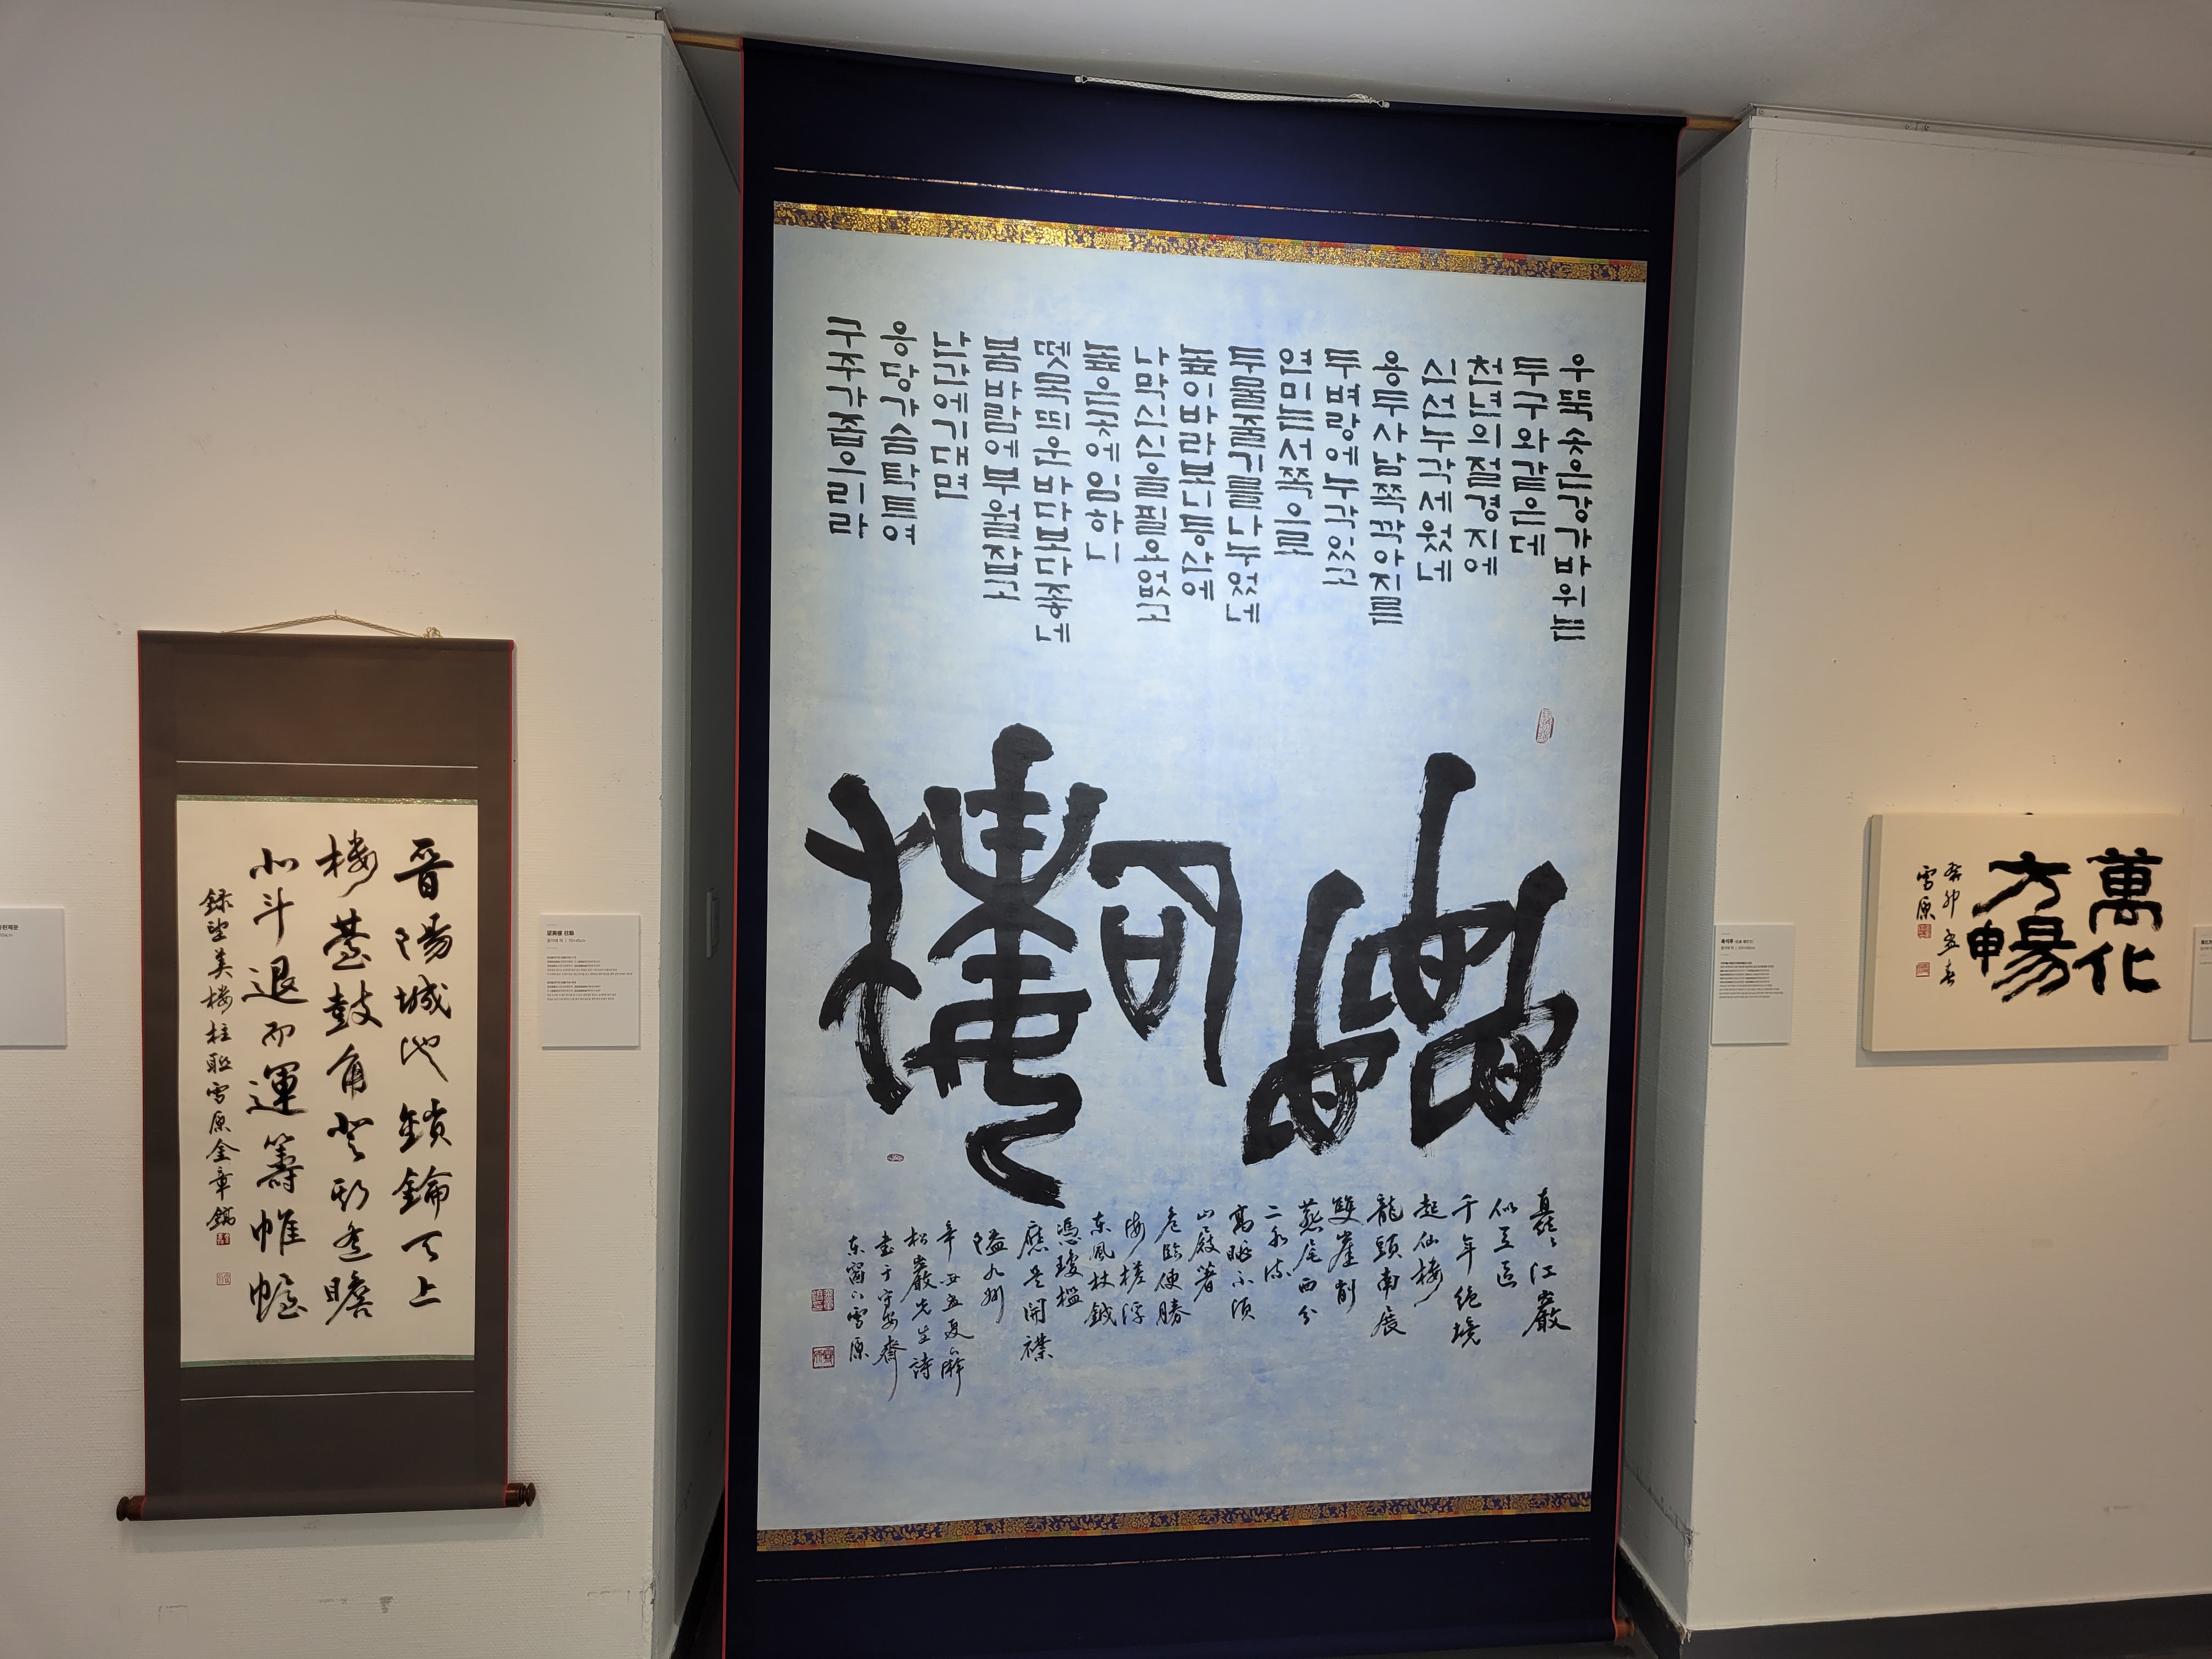 晋陽城池鎖鑰天上
樓臺鼓角登瞻
北斗退而運籌帷幄
錄望美樓柱聯雪原金章鎬
望美樓 柱聯
우뚝솟은강가바위는
투구와같은데
천년의절경지에
신선누각세웠네
용두산남쪽깎아지른
두벼랑에누각있고
연미는서쪽
두물줄기를나누었네
높이바라보니동산에
나막신신을필요없고
임하니
뗏목띄운바다보다좋네
봄바람에부월잡고
난간에기대면
응당가슴탁트여
구주가좁으리라
矗石樓
矗矗江巖
似
千年絶境
起仙樓
龍頭南展
雙崖削
燕尾西分
二水流
高眺不須
山屐著
危臨便勝
海槎浮
東風杖鉞
憑瓊檻
應是開襟
隘九州
辛丑孟夏
松巖先生詩
書于守安齋
東窗下雪原
촉석루
萬化
方暢
癸卯孟春
雪原